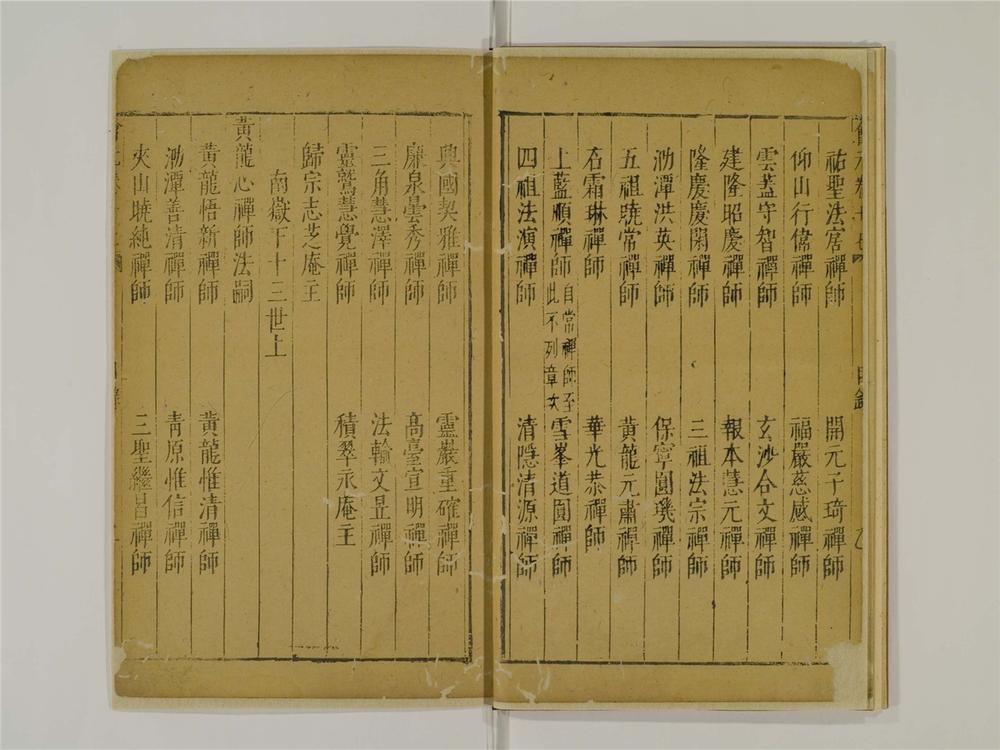 祐聖法㝛禪師 開元子琦禪師
仰山行偉禪師 福嚴慈感禪師
雲蓋守智禪師 玄沙合文禪師
建隆昭慶禪師 報本慧元禪師
隆慶慶閑禪師 三祖法宗禪師
泐潭洪英禪師 保寧圓璣禪師
五祖曉常禪師 黃龍元肅禪師
石霜琳禪師 華光恭禪師
上藍順禪師 自常禪師至此不列章次 雪峯道圓禪師
四祖法演禪師 清隱清源禪師
興國契雅禪師 靈巖重確禪師
廉泉曇秀禪師 高臺宣明禪師
三角慧澤禪師 法輪文昱禪師
靈鷲慧覺禪師 積翠永庵主
歸宗志芝庵主
南嶽下十三世上
黃龍心禪師法嗣
黃龍悟新禪師 黃龍惟清禪師
泐潭善清禪師 青原惟信禪師
夾山曉純禪師 三聖繼昌禪師